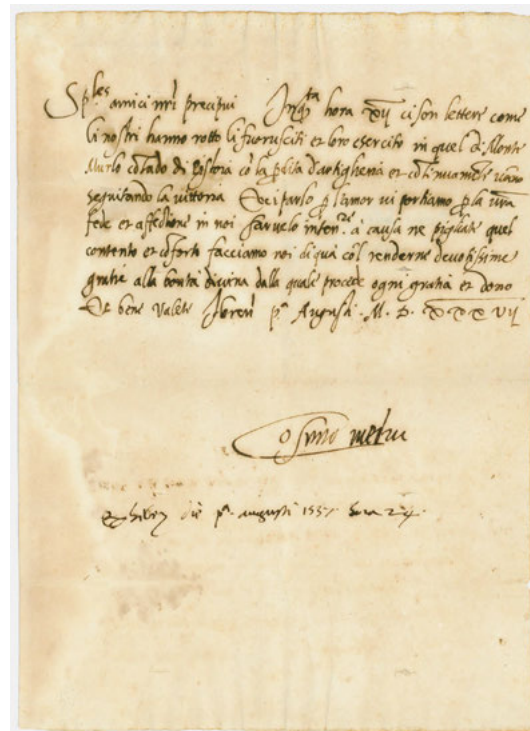 Sp.les amici nri precipui In q.ta hora XVII ci son lettere come
li nostri hanno rotto li fuorusciti et loro esercito in quel di Monte
Murlo cotado di Pistoia cō la pdita d'artigheria et cōtinuamēte vāno
seguitando la vittoria Et ci parso p l'amor vi portiamo p la vrā
fede et affectione in noi farvelo inten.re à causa ne pigliate quel
contento et cōforto facciamo noi di qua col renderne devotissime
gratie alla bontà divina dalla quale procede ogni gratia et dono
Et bene valete Floren p.o Augusti . M. D. XXXVII
Cosimo medici
die p.o augusti 1537 hora 24.